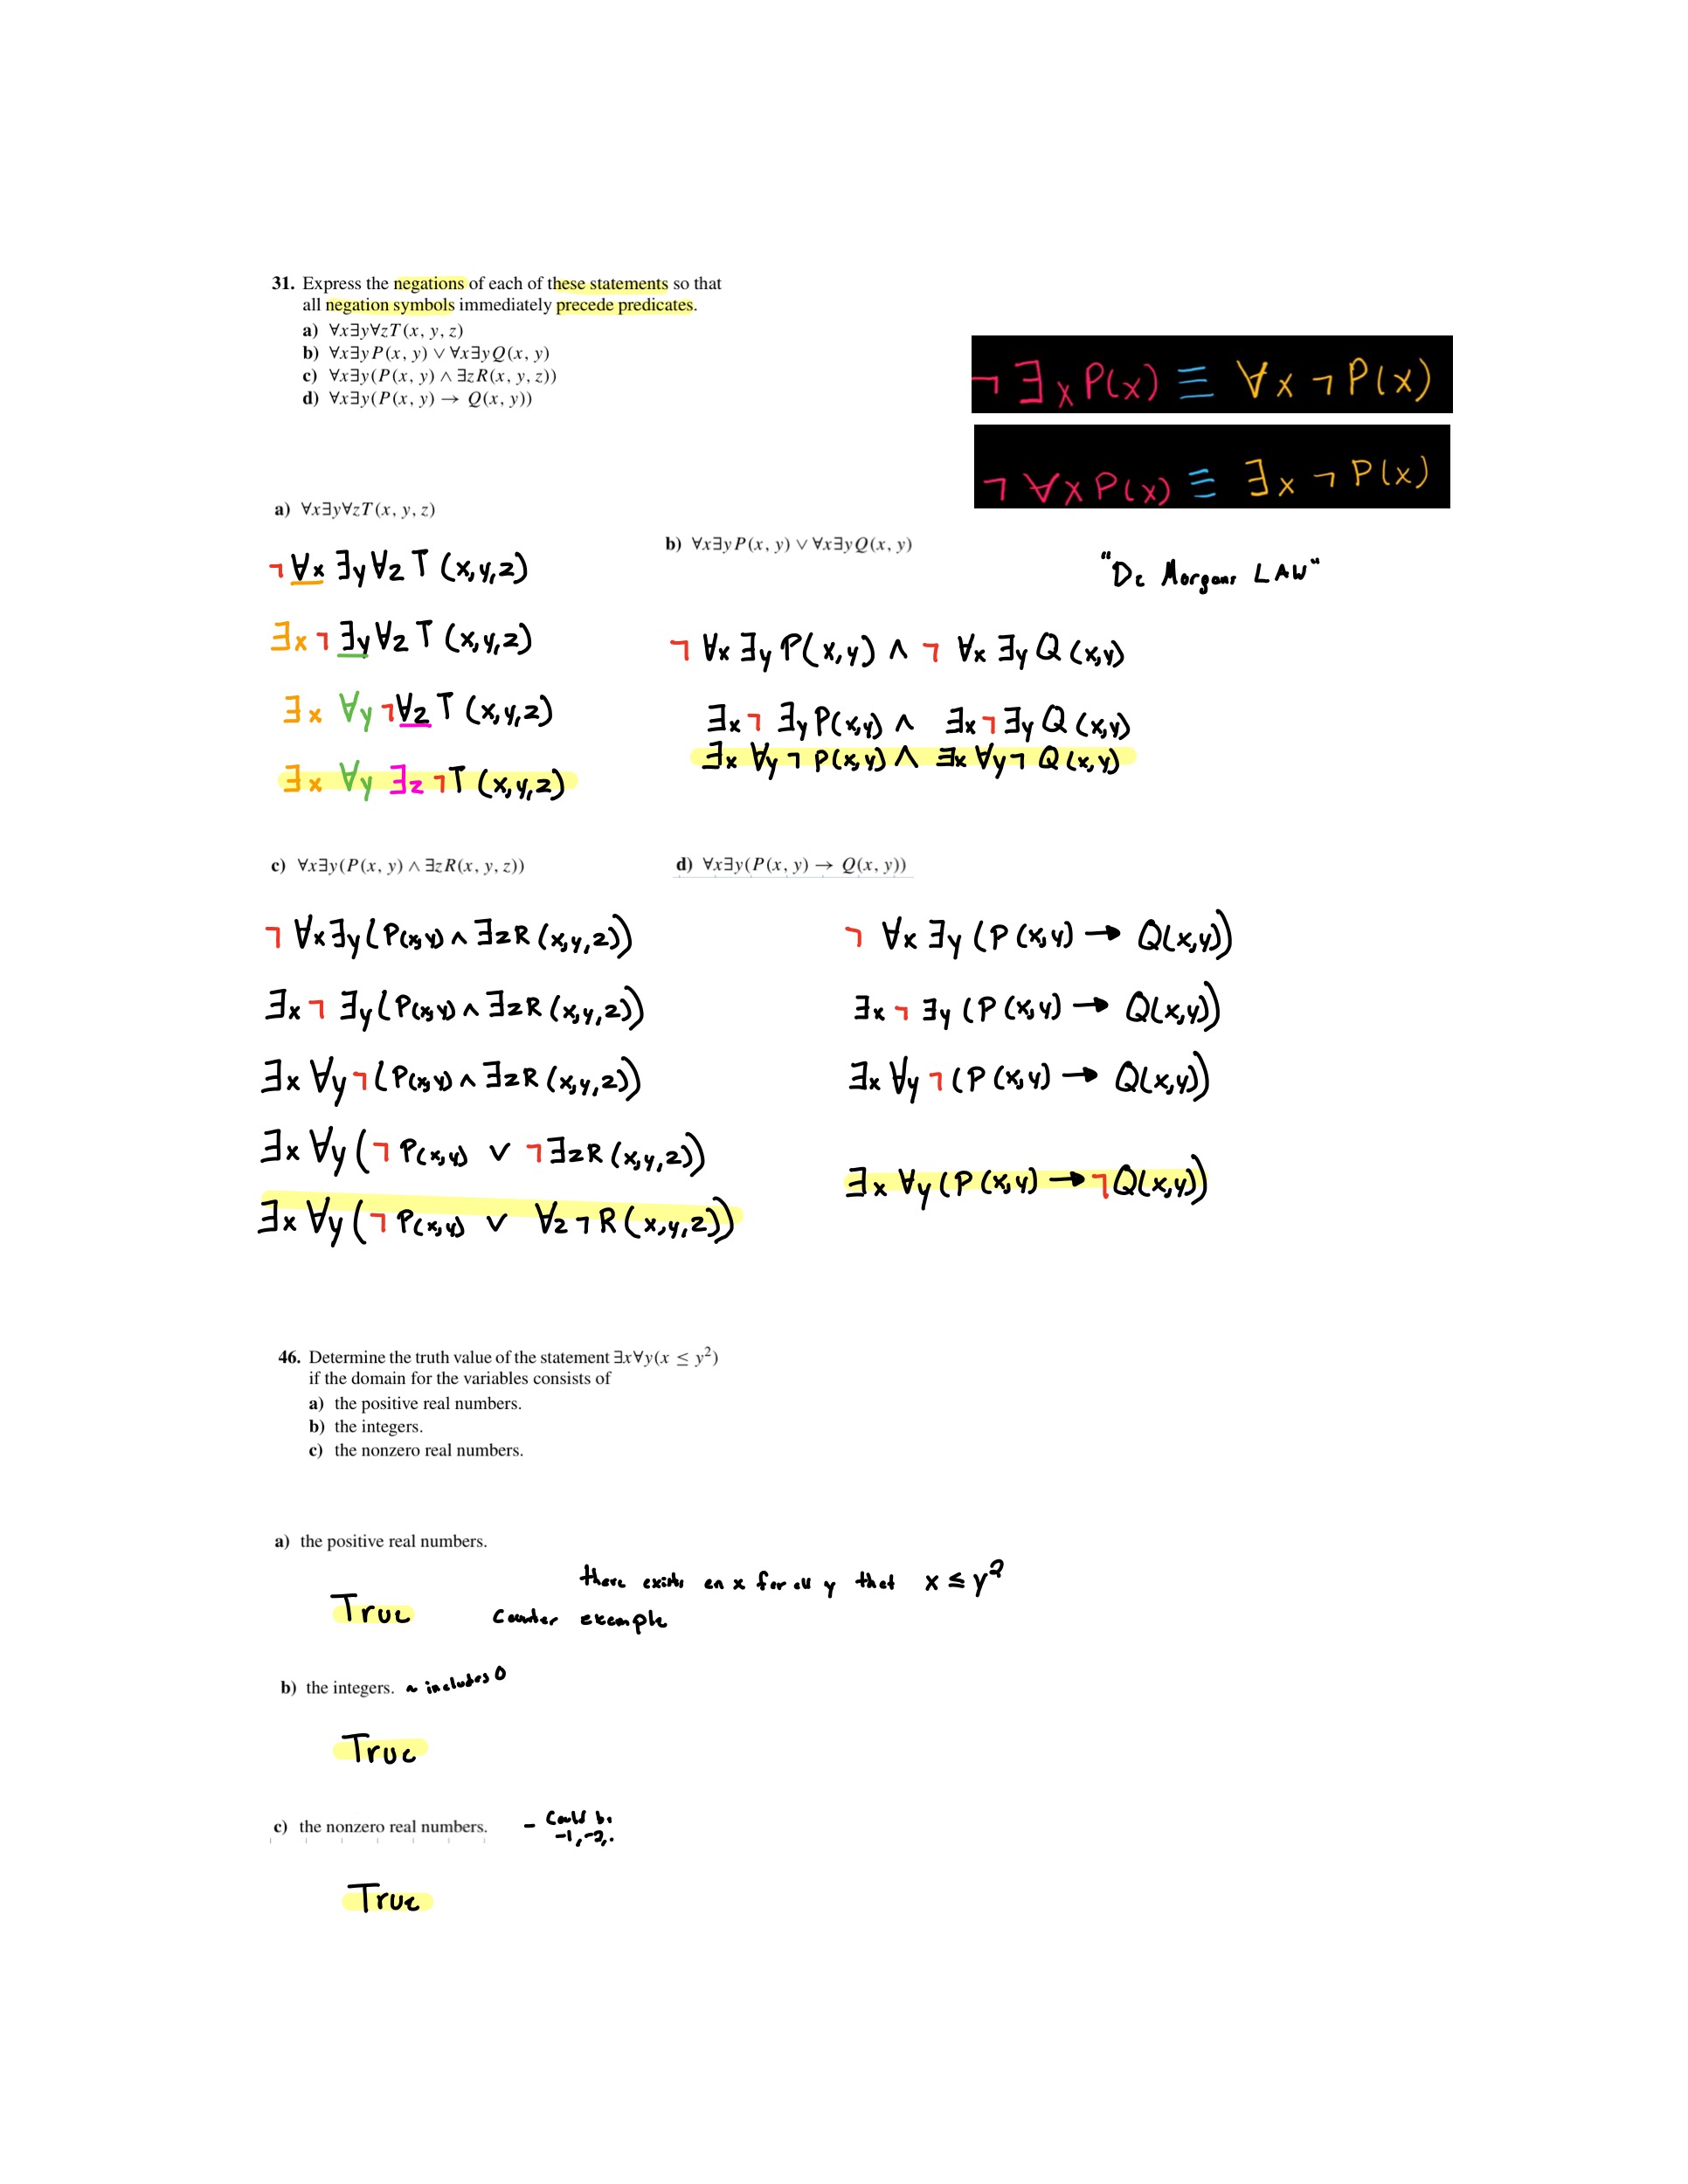 31. Express the negations of each of these statements so that
all negation symbols immediately precede predicates.
a) ∀x∃y∀zT(x, y, z)
b) ∀x∃yP(x, y) ∨ ∀x∃yQ(x, y)
c) ∀x∃y(P(x, y) ∧ ∃zR(x, y, z))
d) ∀x∃y(P(x, y) → Q(x, y))
¬∃xP(x) ≡ ∀x¬P(x)
¬∀xP(x) ≡ ∃x¬P(x)
a) ∀x∃y∀zT(x, y, z)
¬∀x∃y∀zT(x,y,z)
∃x¬∃y∀zT(x,y,z)
∃x∀y¬∀zT(x,y,z)
∃x∀y∃z¬T(x,y,z)
b) ∀x∃yP(x, y) ∨ ∀x∃yQ(x, y)
"De Morgans LAW"
¬∀x∃yP(x,y) ∧ ¬∀x∃yQ(x,y)
∃x¬∃yP(x,y) ∧ ∃x¬∃yQ(x,y)
∃x∀y¬P(x,y) ∧ ∃x∀y¬Q(x,y)
c) ∀x∃y(P(x, y) ∧ ∃zR(x, y, z))
¬∀x∃y(P(x,y) ∧ ∃zR(x,y,z))
∃x¬∃y(P(x,y) ∧ ∃zR(x,y,z))
∃x∀y¬(P(x,y) ∧ ∃zR(x,y,z))
∃x∀y(¬P(x,y) ∨ ¬∃zR(x,y,z))
∃x∀y(¬P(x,y) ∨ ∀z¬R(x,y,z))
d) ∀x∃y(P(x, y) → Q(x, y))
¬∀x∃y(P(x,y) → Q(x,y))
∃x¬∃y(P(x,y) → Q(x,y))
∃x∀y¬(P(x,y) → Q(x,y))
∃x∀y(P(x,y) → ¬Q(x,y))
46. Determine the truth value of the statement ∃x∀y(x ≤ y²)
if the domain for the variables consists of
a) the positive real numbers.
b) the integers.
c) the nonzero real numbers.
a) the positive real numbers.
there exists an x for all y that x ≤ y²
True counter example
b) the integers. ~ includes 0
True
c) the nonzero real numbers. - could be
-1, -2, .
True